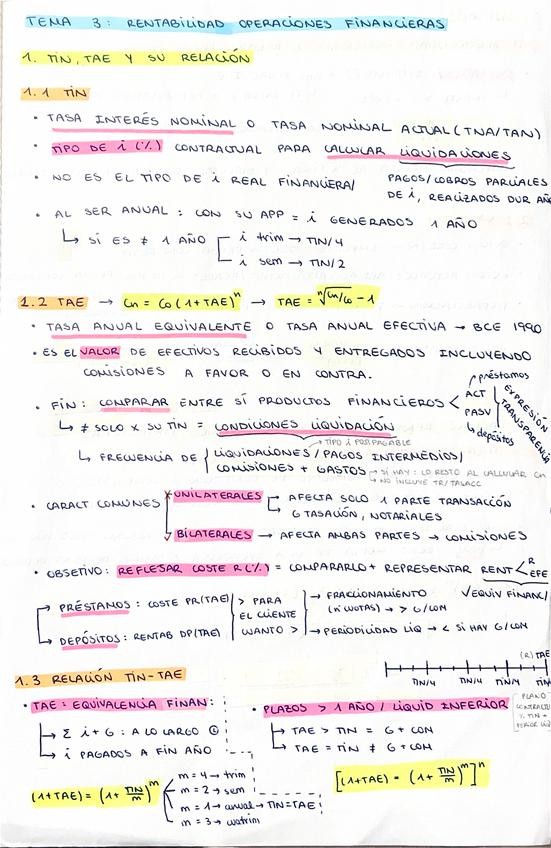 TEMA 3: RENTABILIDAD OPERACIONES FINANCIERAS
1. TIN, TAE Y SU RELACIÓN
1.1 TIN
• TASA INTERÉS NOMINAL O TASA NOMINAL ACTUAL (TNA/TAN)
• TIPO DE i (%) CONTRACTUAL PARA CALCULAR LIQUIDACIONES
• NO ES EL TIPO DE i REAL FINANCIERA/ PAGOS/COBROS PARCIALES
DE i, REALIZADOS DUR AÑO
• AL SER ANUAL: CON SU APP = i GENERADOS 1 AÑO
↳ SI ES ≠ 1 AÑO i trim → TIN/4
i sem → TIN/2
1.2 TAE → Cn = C0 (1+TAE)^n → TAE = ⁿ√Cn/C0 - 1
• TASA ANUAL EQUIVALENTE O TASA ANUAL EFECTIVA → BCE 1990
• ES EL VALOR DE EFECTIVOS RECIBIDOS Y ENTREGADOS INCLUYENDO
COMISIONES A FAVOR O EN CONTRA.
• FIN: COMPARAR ENTRE SÍ PRODUCTOS FINANCIEROS < ACT PASV
préstamos
depósitos
EXPRESIÓN
TRANSPARENCIA
↳ ≠ SOLO X SU TIN = CONDICIONES LIQUIDACIÓN
→ TIPO i PREPAGABLE
↳ FRECUENCIA DE { LIQUIDACIONES / PAGOS INTERMEDIOS/
COMISIONES + GASTOS → SI HAY: LO RESTO AL CALCULAR Cn
→ NO INCLUYE
• CARACT COMUNES UNILATERALES → AFECTA SOLO 1 PARTE TRANSACCIÓN
G TASACIÓN, NOTARIALES
BILATERALES → AFECTA AMBAS PARTES → COMISIONES
• OBJETIVO: REFLEJAR COSTE R (%) = COMPARARLO + REPRESENTAR RENT < R EFE
√EQUIV FINANC/
→ PRÉSTAMOS: COSTE PR(TAE) > PARA
EL CLIENTE
CUANTO >
→ FRACCIONAMIENTO
(N CUOTAS) → > G/COM
↳ DEPÓSITOS: RENTAB DP(TAE) → PERIODICIDAD LIQ → < SI HAY G/COM
1.3 RELACIÓN TIN-TAE
(R) TAE
TIN/4 TIN/4 TIN/4
• TAE: EQUIVALENCIA FINAN:
↳ Σ i + G: A LO LARGO
↳ i PAGADOS A FIN AÑO
• PLAZOS > 1 AÑO / LIQUID INFERIOR
↳ TAE > TIN = G + COM
↳ TAE = TIN ≠ G + COM
(1+TAE) = (1 + TIN/m)^m
m = 4 → trim
m = 2 → sem
m = 1 → anual → TIN=TAE
m = 3 → cuatrim
[(1+TAE) = (1 + TIN/m)^m]^n